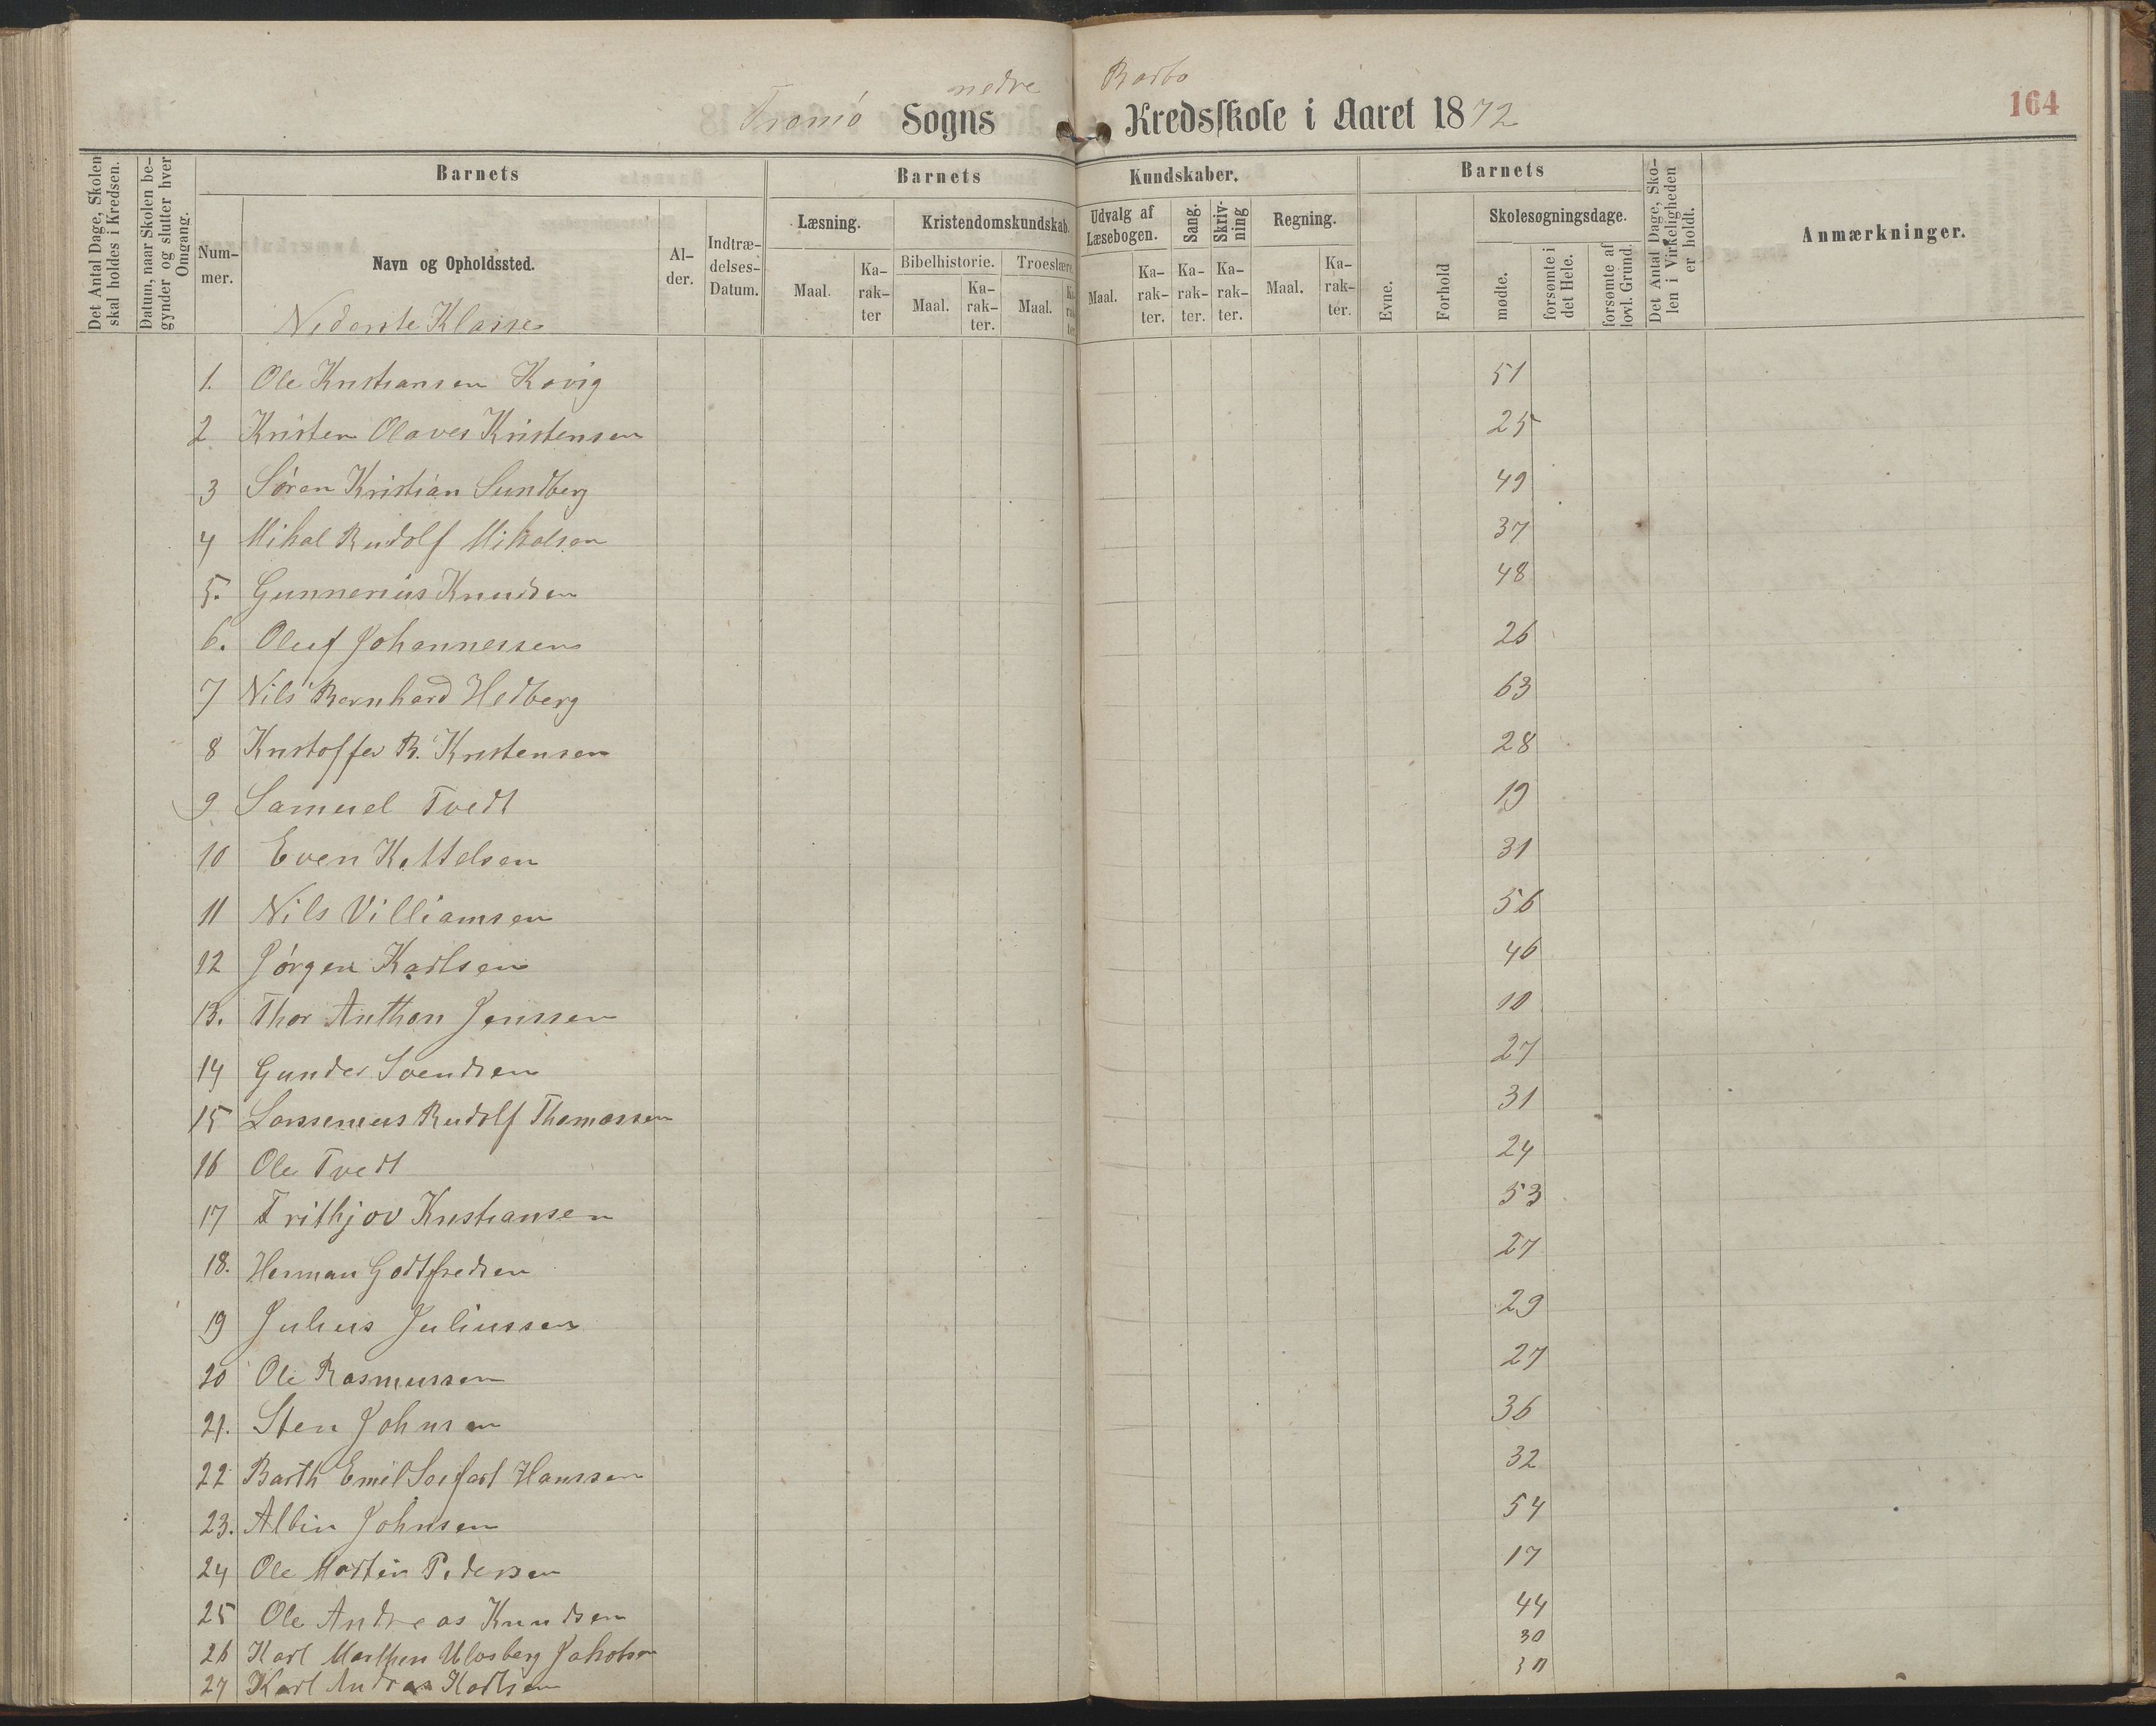 nedre Barbo
Tromö Sogns Kredsskole i Aaret 1872
164
Det Antal Dage, Skolen skal holdes i Kredsen.
Datum, naar Skolen begynder og slutter hver Omgang.
Barnets
Nummer.
Navn og Opholdssted.
Alder.
Indtrædelses-Datum.
Barnets Kundskaber.
Læsning.
Maal.
Karakter
Kristendomskundskab.
Bibelhistorie.
Maal.
Karakter.
Troeslære.
Maal.
Udvalg af Læsebogen.
Maal.
Karakter.
Sang.
Karakter.
Skrivning
Karakter.
Regning.
Maal.
Karakter.
Barnets
Evne.
Forhold
Skolesøgningsdage.
mødte.
forsømte i det Hele.
forsømte af lovl. Grund.
Det Antal Dage, Skolen i Virkeligheden er holdt.
Anmærkninger.
Nederste Klasse
1. Ole Kristiansen Kovig 51
2 Kristen Olaves Kristensen 25
3 Sören Kristian Sundberg 49
4 Mikal Rudolf Mikalsen 37
5. Gunnerius Knudsen 48
6. Oluf Johannessen 26
7 Nils Bernhard Hedberg 63
8 Kristoffer B. Kristensen 28
9 Samuel Tvedt 19
10 Even Kittelsen 31
11 Nils Villiamsen 56
12 Jörgen Karlsen 46
13. Thor Anthon Jenssen 10
14 Gunder Svendsen 27
15 Larssenius Rudolf Thomassen 31
16 Ole Tvedt 24
17 Frithjov Kristiansen 53
18. Herman Godtfredsen 27
19 Julius Juliussen 29
20 Ole Rasmussen 27
21. Sten Johnsen 36
22 Barth Emil Hanssen 32
23. Albin Johnsen 54
24 Ole Martin Pedersen 17
25 Ole Andreas Knudsen 44
26 Karl Jakobsen 30
27 Karl Andreas Karlsen 30